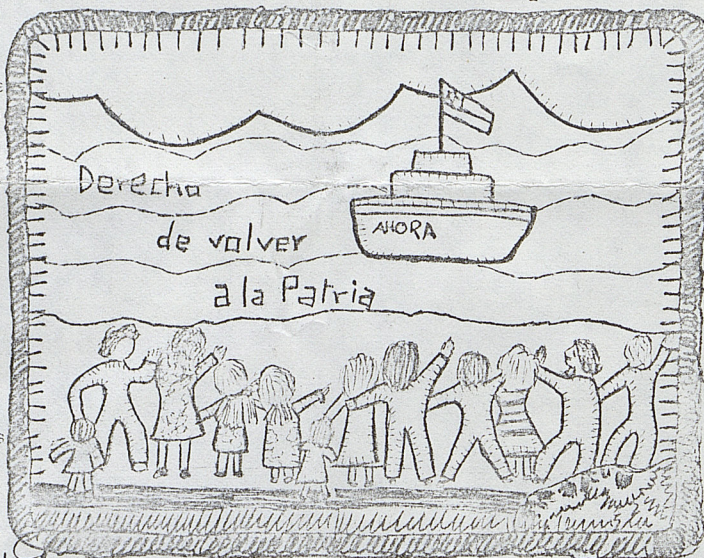 Derecho
de volver
a la Patria
AHORA